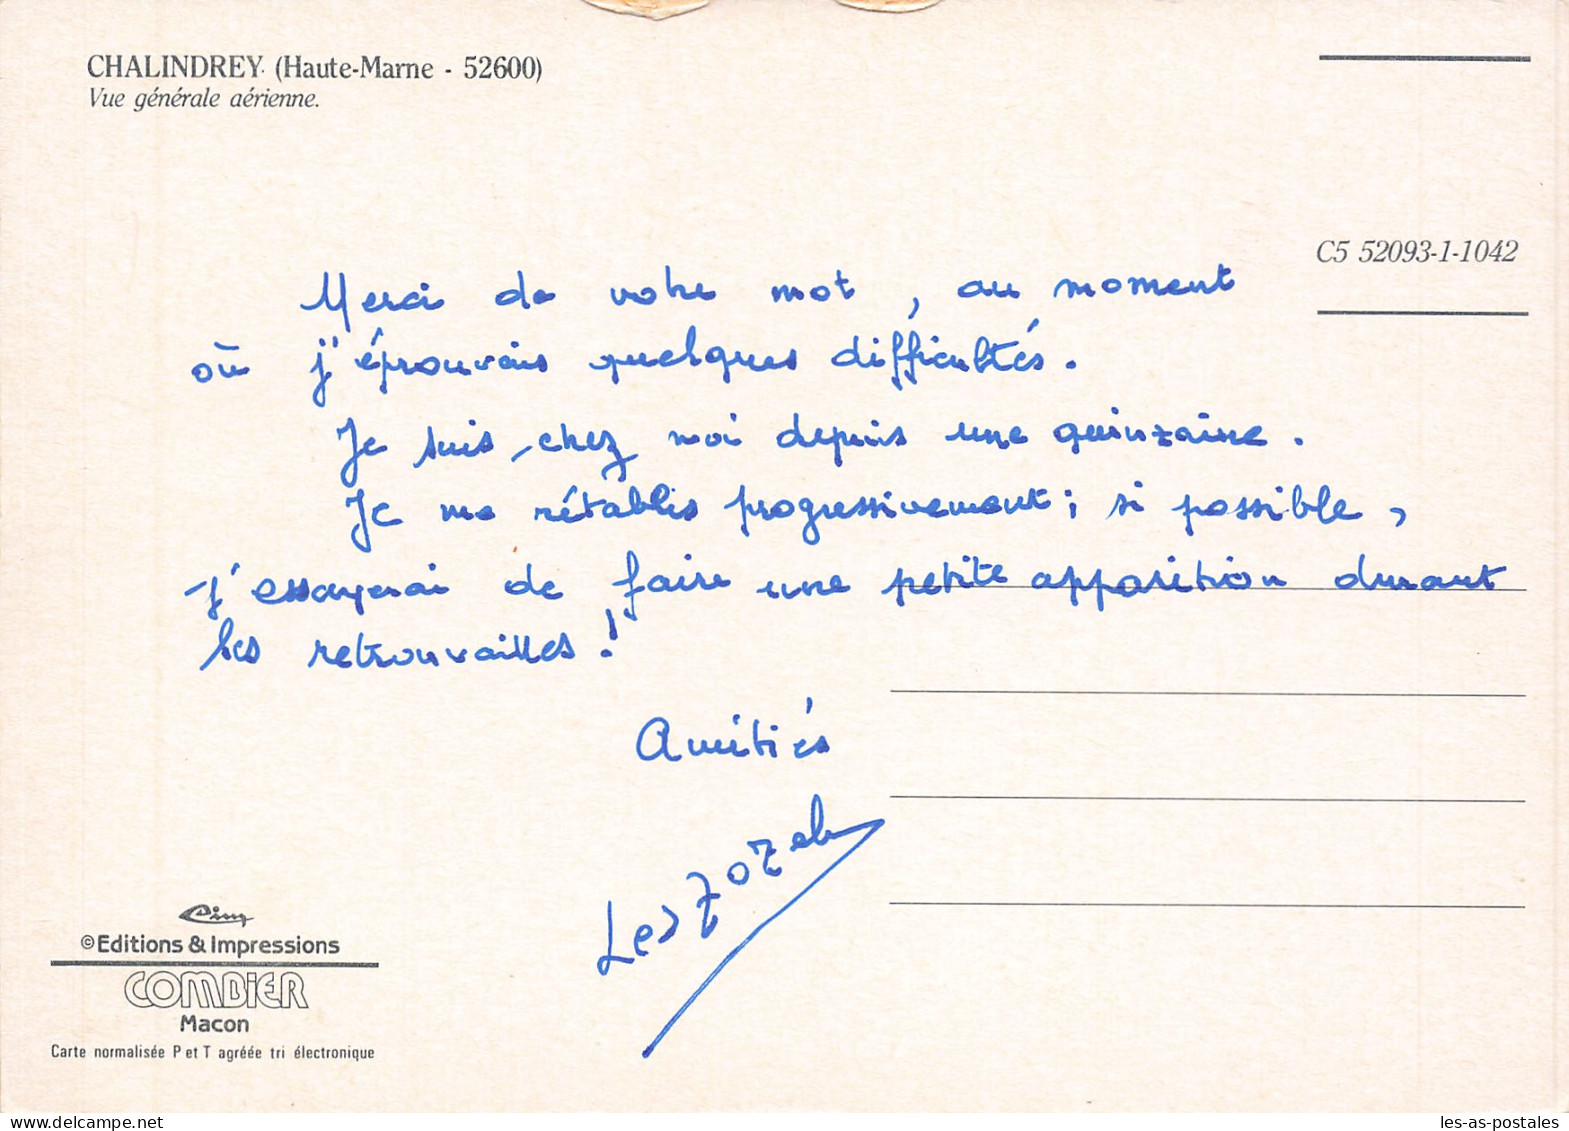 CHALINDREY (Haute-Marne - 52600)
Vue générale aérienne.
C5 52093-1-1042
Merci de votre mot, au moment
où j'éprouvais quelques difficultés.
Je suis chez moi depuis une quinzaine.
Je me rétablis progressivement; si possible,
j'essayerai de faire une petite apparition durant
les retrouvailles!
Amitiés
Cim
©Editions & Impressions
COMBIER
Macon
Carte normalisée P et T agréée tri électronique
les-as-postales